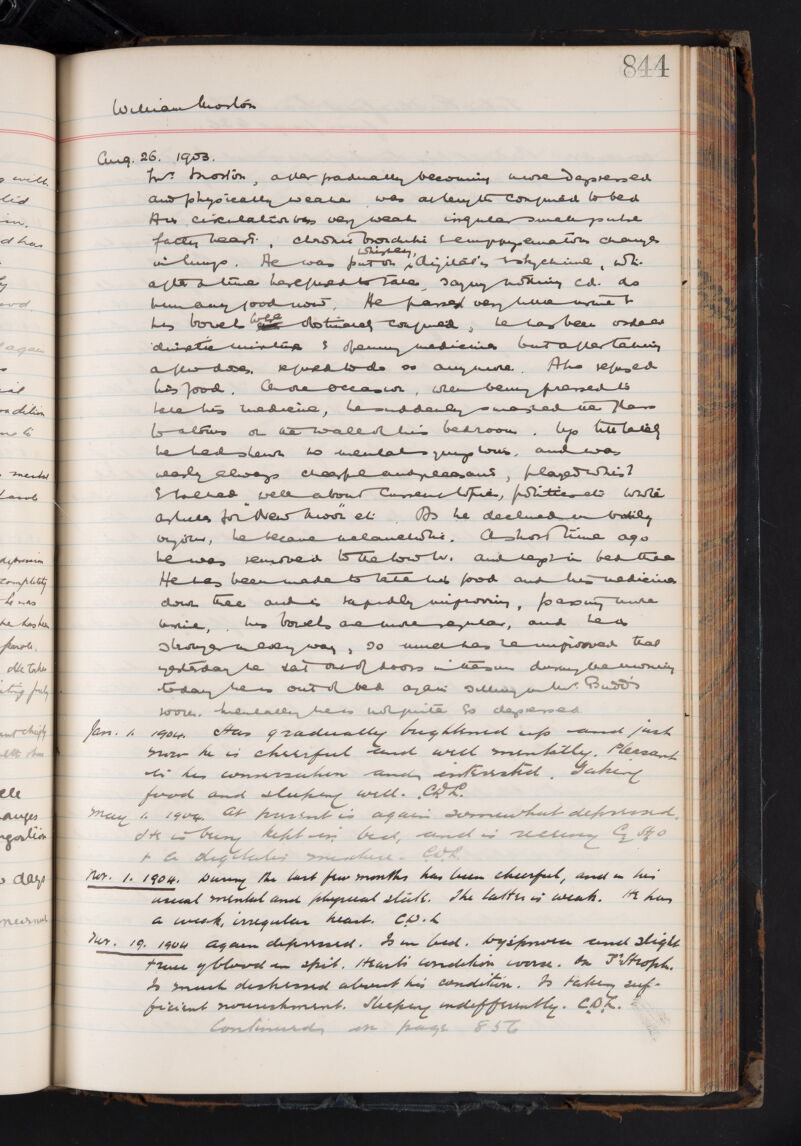 844
William Morton
Aug. 26. 1903.
Mr. Morton, after gradually becoming more depressed
and physically weaker was at length confined to bed
His circulation was very weak irregular small pulse
fatty heart, chronic bronchitis & emphysematous changes
in lungs. He was put on whiskey, digitalis & strychnine, wh.
after a time he refused to take, saying nothing cd. do
him any good now. He passed very little urine &
his bowels were obstinately confined, he has been ordered
diuretic mixture & opening medicines but after taking
a few doses refused to do so any more. Also refused
his food. On one occasion, when being pressed to
take his medicine, he suddenly smashed the glass
to atoms on the wall of his bedroom. Up till lately
he had shewn no mental symptoms, and was
nearly always cheerful and pleasant, played whist
& talked well about current topics, politics etc wrote
articles for "New Moon" etc. As he declined in bodily
vigour, he became melancholic. A short time ago
he was removed to the and kept in bed there
He has been made to take his food and his medicine
down there and is rapidly improving, passing more
urine, his bowels are more regular, and he is
stronger in every way, so much has he improved that
yesterday he sat out of doors in the sun during the morning
today he is out of bed again sitting in Mr. Budd's
room. Mentally he is not quite so depressed
Jan. 1. 1904. Has gradually brightened up and just
now he is cheerful and well mentally. Pleasant
in his conversation and interested. Taking
food and sleeping well. C.D.L.
May 1. 1904. At present is again somewhat depressed.
He is being kept in bed, and is
& a digitalis mixture. CDL
Nov. 1. 1904. During the last few months has been cheerful, and in his
usual mental and physical state. The latter is weak. He has
a weak, irregular heart. C.D.L
Nov. 19. 1904 again depressed. Is in bed. Dyspnoea and slight
trace of blood in spit. Heart's condition worse. On Tr. Stroph.
Is much distressed about his condition. Is taking suf-
ficient nourishment. Sleeping indifferently. C.D.L.
Continued on page 856